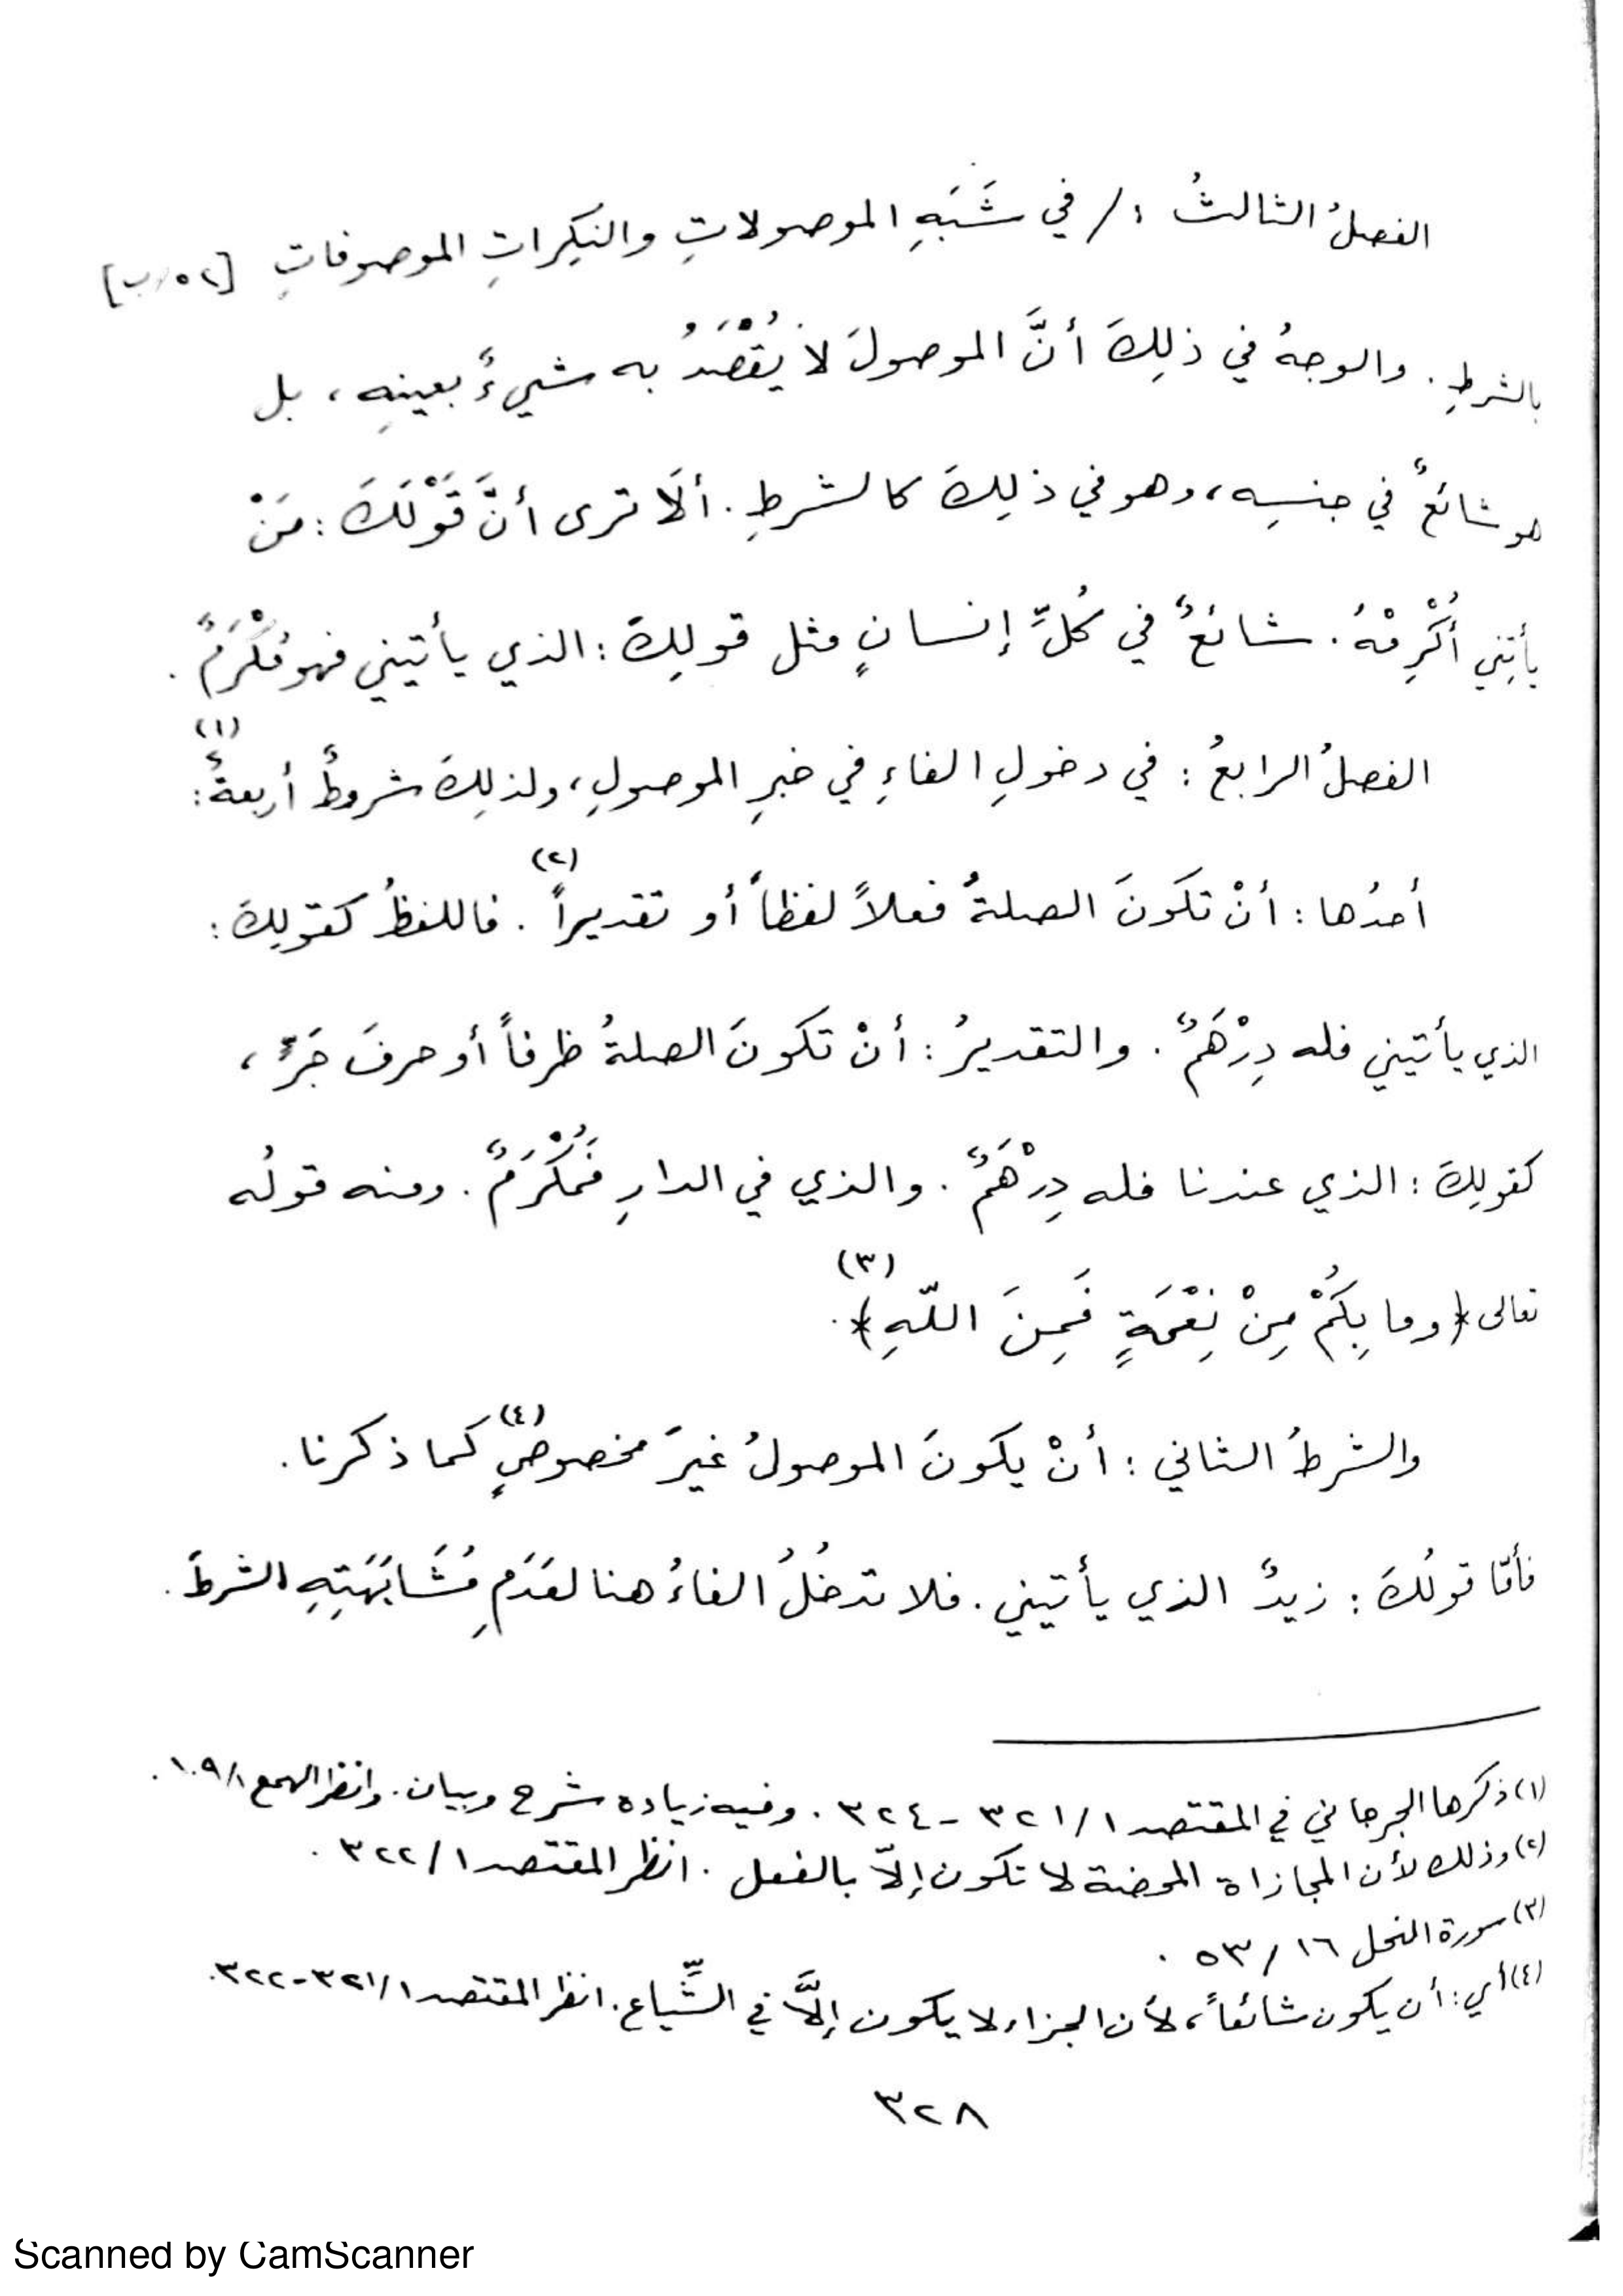 الفصلُ الثالثُ : / في شَبَهِ الموصولاتِ والنَكِراتِ الموصوفاتِ [٥٢/ب]
بالشرطِ . والوجهُ في ذلِكَ أنَّ الموصولَ لا يُقْصَدُ به شيءٌ بعينهِ ، بل
هو شائعٌ في جنسِه ، وهو في ذلِكَ كالشرطِ . ألَا ترى أنَّ قَوْلَكَ : مَنْ
يأتِني أُكْرِمْهُ . شائعٌ في كُلِّ إنسانٍ مثل قولِكَ : الذي يأتيني فهو مُكْرَمٌ .
الفصلُ الرابعُ : في دخولِ الفاءِ في خبرِ الموصولِ ، ولذلِكَ شروطٌ أربعةٌ (١) :
أحدُها : أنْ تكونَ الصلةُ فعلاً لفظاً أو تقديراً (٢) . فاللفظُ كقولِكَ :
الذي يأتيني فله دِرْهَمٌ . والتقديرُ : أنْ تكونَ الصلةُ ظرفاً أو حرفَ جَرٍّ ،
كقولِكَ : الذي عندنا فله دِرْهَمٌ . والذي في الدارِ فَمُكْرَمٌ . ومنه قولُه
تعالى ﴿وما بِكُمْ مِنْ نِعْمَةٍ فَمِنَ اللّهِ﴾ (٣) .
والشرطُ الثاني : أنْ يكونَ الموصولُ غيرَ مخصوصٍ (٤) كما ذكرنا .
فأمّا قولُكَ : زيدٌ الذي يأتيني . فلا تدخُلُ الفاءُ هنا لعَدَمِ مُشَابَهَتِهِ الشرطَ .
(١) ذكرها الجرجاني في المقتصد ١/ ٣٢١ - ٣٢٤ . وفيه زيادة شرح وبيان . وانظر الهمع ١/ ١٠٩ .
(٢) وذلك لأن المجازاة المحضة لا تكون إلاّ بالفعل . انظر المقتصد ١/ ٣٢٢ .
(٣) سورة النحل ١٦ / ٥٣ .
(٤) أي : أن يكون شائعاً ، لأن الجزاء لا يكون إلاَّ في الشِّياع . انظر المقتصد ١/ ٣٢١-٣٢٢ .
٣٢٨
Scanned by CamScanner